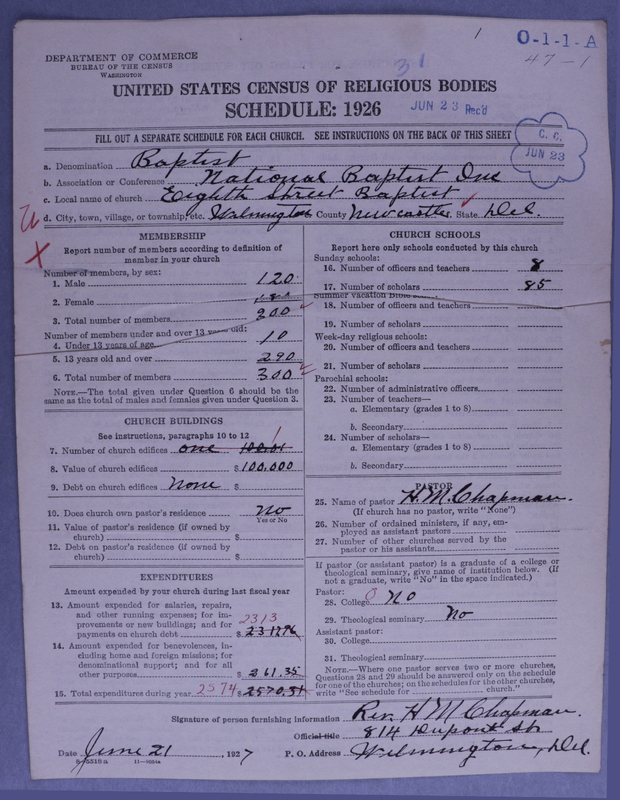 1
O-1-1-A
47-1
31
DEPARTMENT OF COMMERCE
BUREAU OF THE CENSUS
WASHINGTON
UNITED STATES CENSUS OF RELIGIOUS BODIES
SCHEDULE: 1926
JUN 23 Rec'd
FILL OUT A SEPARATE SCHEDULE FOR EACH CHURCH. SEE INSTRUCTIONS ON THE BACK OF THIS SHEET
C. C.
JUN 23
a. Denomination Baptist
b. Association or Conference National Baptist
c. Local name of church Eighth Street Baptist
d. City, town, village, or township, etc. Wilmington County Newcastle State Del.
X
MEMBERSHIP
Report number of members according to definition of
member in your church
Number of members, by sex:
1. Male 120
2. Female
3. Total number of members 300
Number of members under and over 13 years old:
4. Under 13 years of age 10
5. 13 years old and over 290
6. Total number of members 300
NOTE.—The total given under Question 6 should be the
same as the total of males and females given under Question 3.
CHURCH BUILDINGS
See instructions, paragraphs 10 to 12
7. Number of church edifices one 1
8. Value of church edifices $100,000
9. Debt on church edifices None $
10. Does church own pastor's residence No
Yes or No
11. Value of pastor's residence (if owned by
church) $
12. Debt on pastor's residence (if owned by
church) $
EXPENDITURES
Amount expended by your church during last fiscal year
13. Amount expended for salaries, repairs,
and other running expenses; for im-
provements or new buildings; and for
payments on church debt $ 2313
14. Amount expended for benevolences, in-
cluding home and foreign missions; for
denominational support; and for all
other purposes $ 261.35
15. Total expenditures during year 2574 $
CHURCH SCHOOLS
Report here only schools conducted by this church
Sunday schools:
16. Number of officers and teachers 8
17. Number of scholars 85
Summer vacation Bible
18. Number of officers and teachers
19. Number of scholars
Week-day religious schools:
20. Number of officers and teachers
21. Number of scholars
Parochial schools:
22. Number of administrative officers
23. Number of teachers—
a. Elementary (grades 1 to 8)
b. Secondary
24. Number of scholars—
a. Elementary (grades 1 to 8)
b. Secondary
PASTOR
25. Name of pastor H. M. Chapman.
(If church has no pastor, write "None")
26. Number of ordained ministers, if any, em-
ployed as assistant pastors
27. Number of other churches served by the
pastor or his assistants
If pastor (or assistant pastor) is a graduate of a college or
theological seminary, give name of institution below. (If
not a graduate, write "No" in the space indicated.)
Pastor:
28. College 0 No
29. Theological seminary No
Assistant pastor:
30. College
31. Theological seminary
NOTE.—Where one pastor serves two or more churches,
Questions 28 and 29 should be answered only on the schedule
for one of the churches; on the schedules for the other churches,
write "See schedule for church."
Signature of person furnishing information Rev. H M Chapman.
Official title 814 Dupont St
Date June 21 1927 P. O. Address Wilmington, Del.
8-5518a